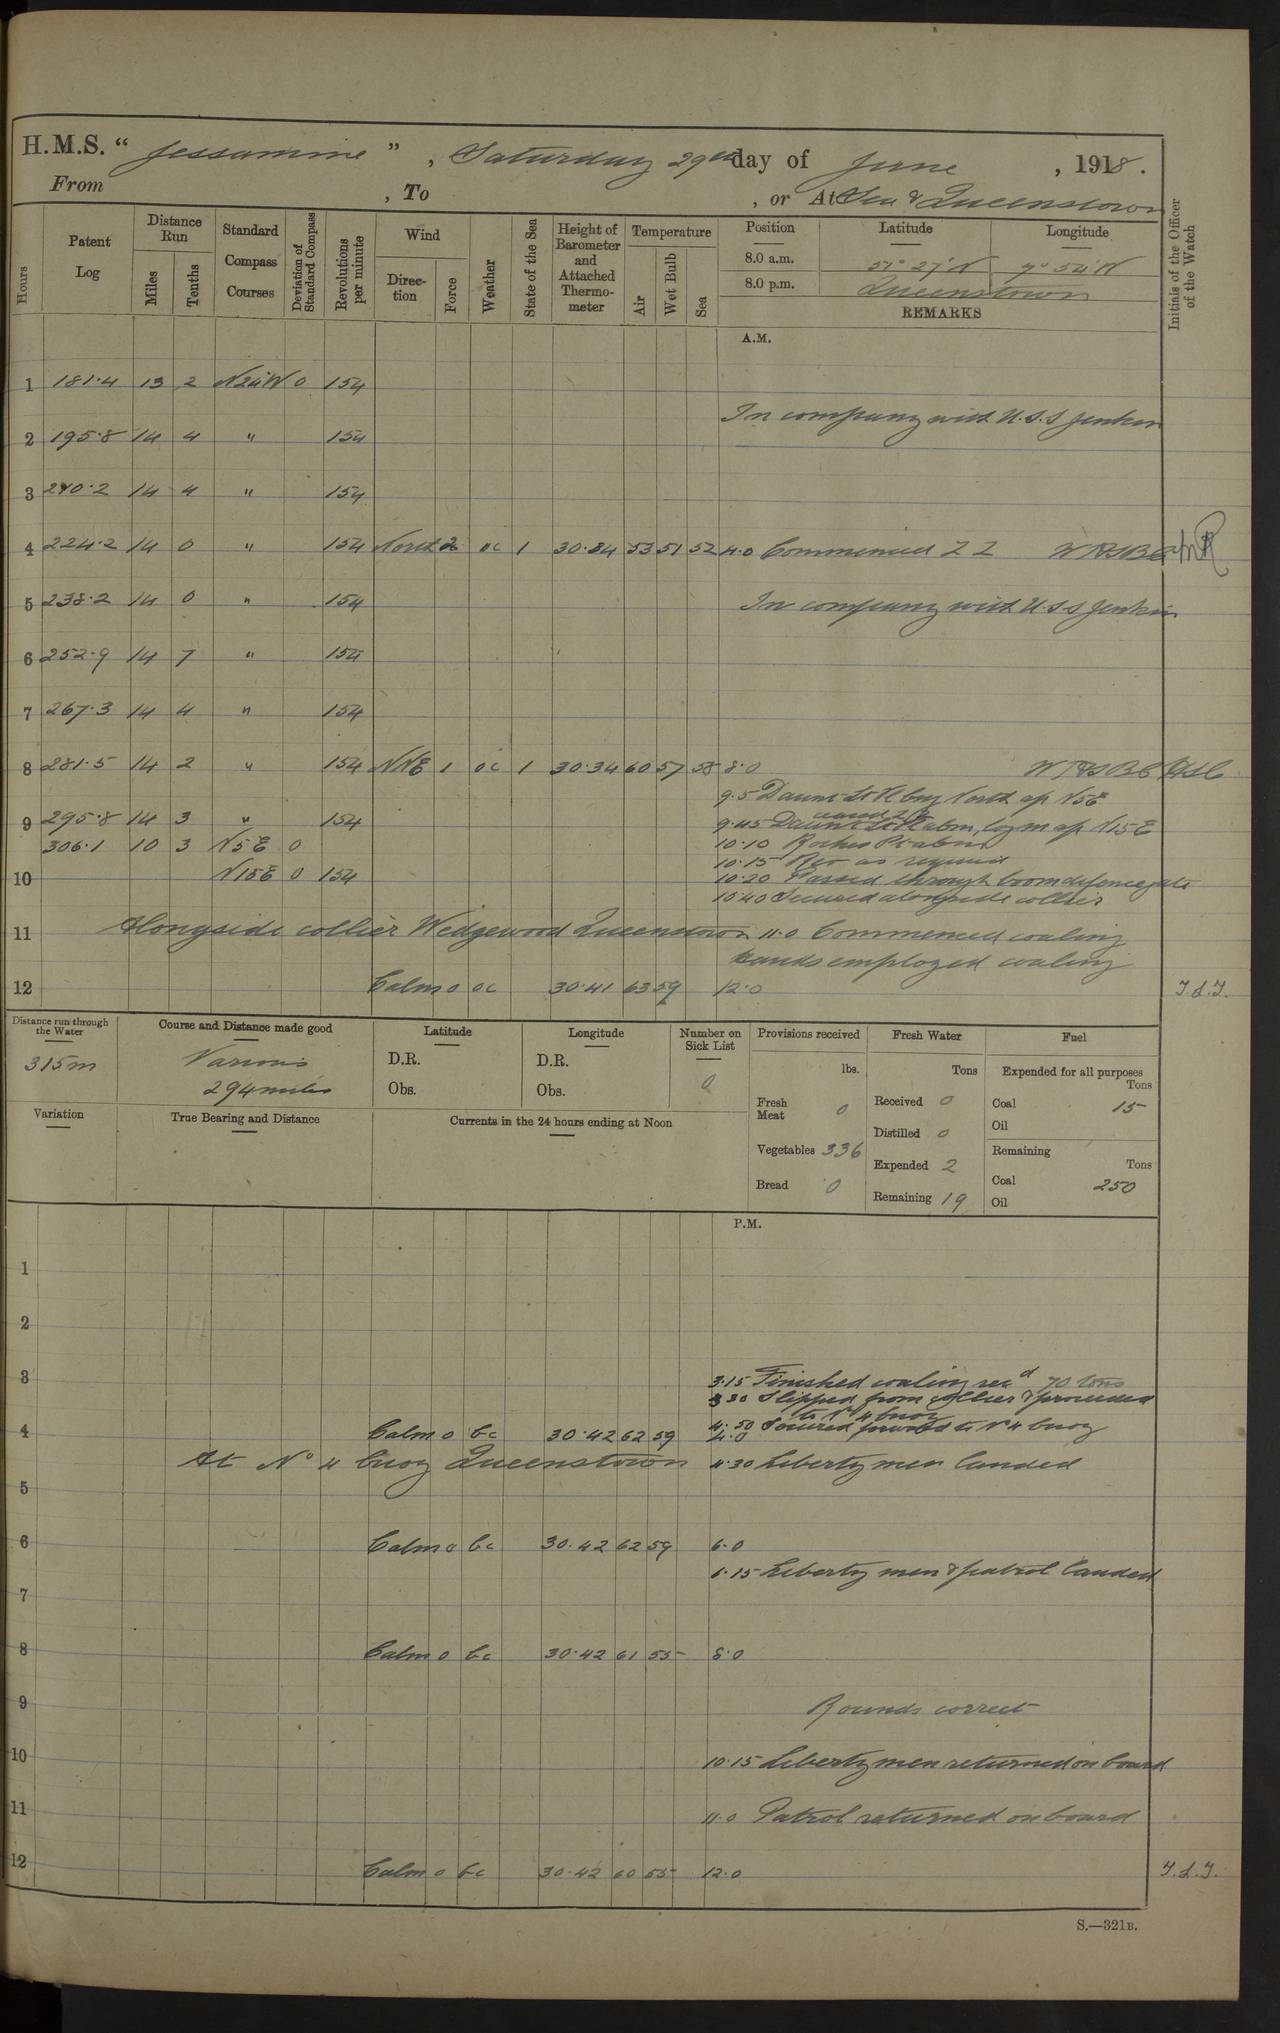 H.M.S. “ Jessamine ” , Saturday 29th day of June , 1918 .
From , To , or At Sea & Queenstown
Hours
Patent Log
Distance Run
Miles
Tenths
Standard Compass Courses
Deviation of Standard Compass
Revolutions per minute
Wind
Direction
Force
Weather
State of the Sea
Height of Barometer and Attached Thermometer
Temperature
Air
Wet Bulb
Sea
Position Latitude Longitude
8.0 a.m. 51° 27' N 7° 54' W
8.0 p.m. Queenstown
REMARKS
Initials of the Officer of the Watch
A.M.
1 181.4 13 2 N24W 0 154
In company with U.S.S Jenkin
2 195.8 14 4 " 154
3 210.2 14 4 " 154
4 224.2 14 0 " 154 North 2 oc 1 30.34 53 51 52 4.0 Commenced Z Z
5 238.2 14 0 " 154 In company with U.S.S Jenkin
6 252.9 14 7 " 154
7 267.3 14 4 " 154
8 281.5 14 2 " 154 NNE 1 oc 1 30.34 60 57 58 8.0
9.5 Daunt Lt Vl brg North a/c N5E
ceased Z Z
9 295.8 14 3 " 154 9.45 Daunt Lt Vl abm, log in a/c N15E
306.1 10 3 N5E 0 10.10 Roches Pt abm
10.15 Rev as required
10 N15E 0 154 10.20 Passed through boom defence gate
10.40 Secured alongside collier
11 Alongside collier Wedgewood Queenstown 11.0 Commenced coaling
hands employed coaling
12 Calm 0 oc 30.41 63 59 12.0 J.L.J.
Distance run through the Water
315m
Course and Distance made good
Various
294 miles
Latitude
D.R.
Obs.
Longitude
D.R.
Obs.
Number on Sick List
0
Provisions received
lbs.
Fresh Meat 0
Vegetables 336
Bread 0
Fresh Water
Tons
Received 0
Distilled 0
Expended 2
Remaining 19
Fuel
Expended for all purposes
Tons
Coal 15
Oil
Remaining
Tons
Coal 250
Oil
Variation
True Bearing and Distance
Currents in the 24 hours ending at Noon
P.M.
1
2
3 3.15 Finished coaling recd 70 tons
3 30 Slipped from collier & proceeded
to No 4 buoy
3.50 Secured to No 4 buoy
4 Calm 0 bc 30.42 62 59 4.0
At No 4 buoy Queenstown 4.30 Liberty men landed
5
6 Calm 0 bc 30.42 62 59 6.0
6.15 Liberty men & patrol landed
7
8 Calm 0 bc 30.42 61 55 8.0
9 Rounds correct
10 10.15 Liberty men returned on board
11 11.0 Patrol returned on board
12 Calm 0 bc 30.42 60 55 12.0 J.L.J.
S.—321B.